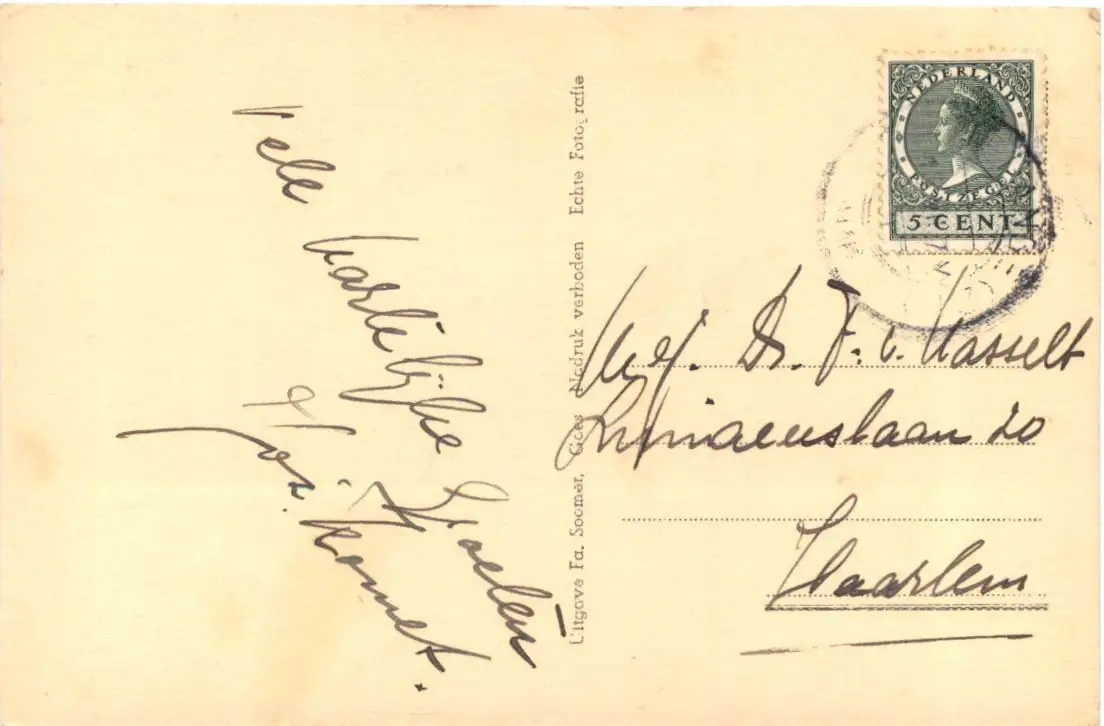 Vele hartelijke Groeten
Uitgave Fa. Soomer, Goes Nadruk verboden Echte Fotografie
NEDERLAND
POSTZEGEL
5 CENT
Mej. Dr. F. v. Hasselt
20
Haarlem